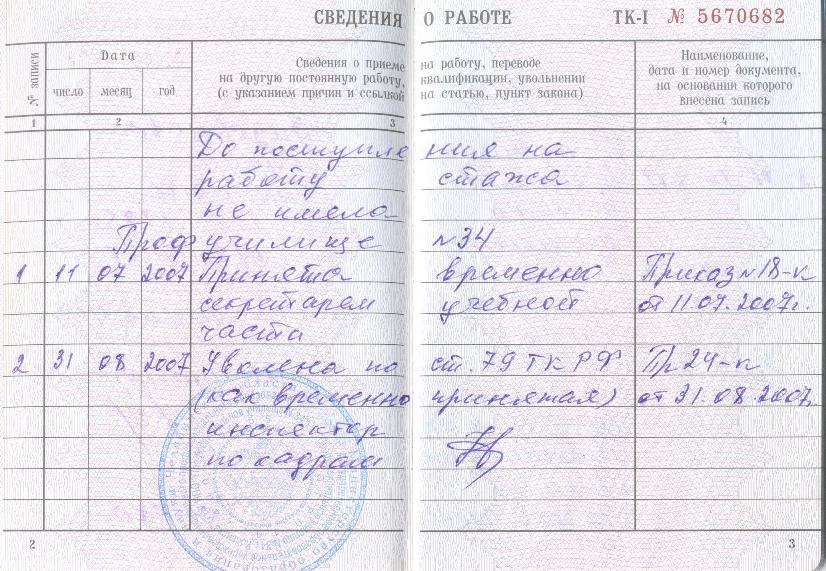 СВЕДЕНИЯ О РАБОТЕ ТК-I № 5670682
№ записи
Дата
число месяц год
Сведения о приеме на работу, переводе
на другую постоянную работу, квалификации, увольнении
(с указанием причин и ссылкой на статью, пункт закона)
Наименование,
дата и номер документа,
на основании которого
внесена запись
1 2 3 4
До поступления на
работу стажа
не имела
Проф училище №34
1 11 07 2007 Принята временно Приказ №18-к
секретарем учебной от 11.07.2007г.
части
2 31 08 2007 Уволена по ст. 79 ТК РФ Пр 24-к
(как временно принятая) от 31.08.2007г.
инспектор
по кадрам
2 3